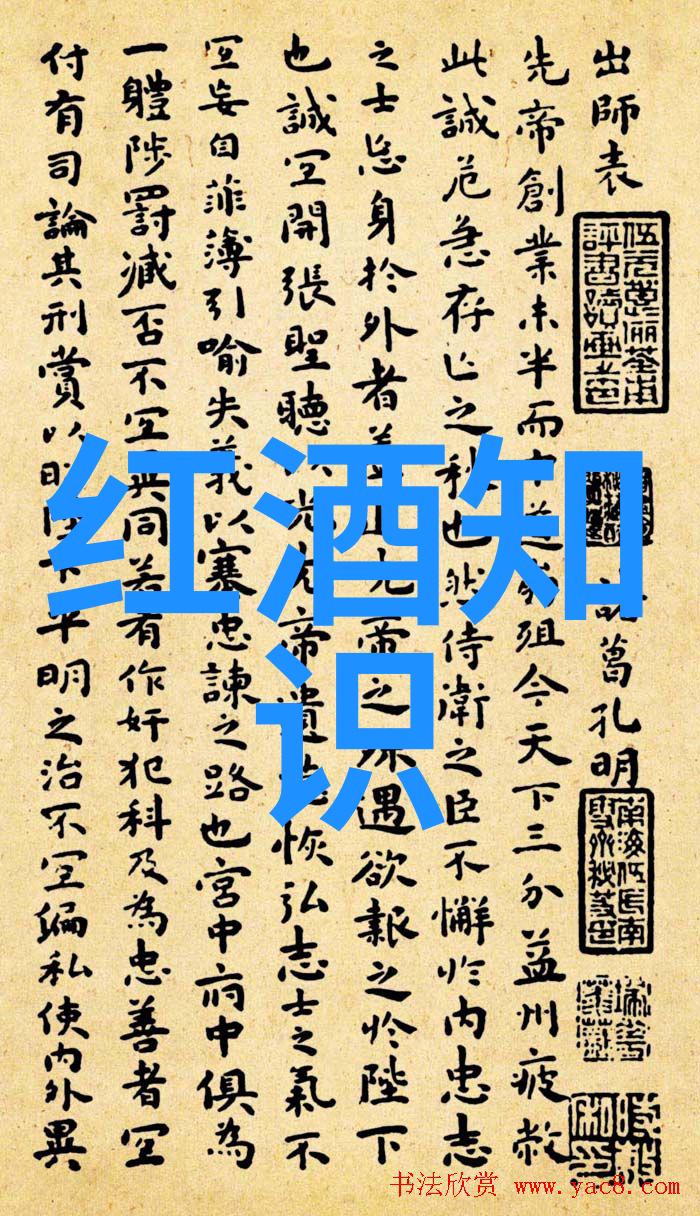 出師表
諸葛孔明
先帝創業未半而中道崩殂今天下三分益州疲敝
此誠危急存亡之秋也然侍衛之臣不懈於內忠志
之士忘身於外者蓋追先帝之殊遇欲報之於陛下
也誠宜開張聖聽以光先帝遺德恢弘志士之氣不
宜妄自菲薄引喻失義以塞忠諫之路也宮中府中俱為
一體陟罰臧否不宜異同若有作奸犯科及為忠善者宜
付有司論其刑賞以昭陛下平明之治不宜偏私使內外異
红酒知
识
书法欣赏 www.yac8.com